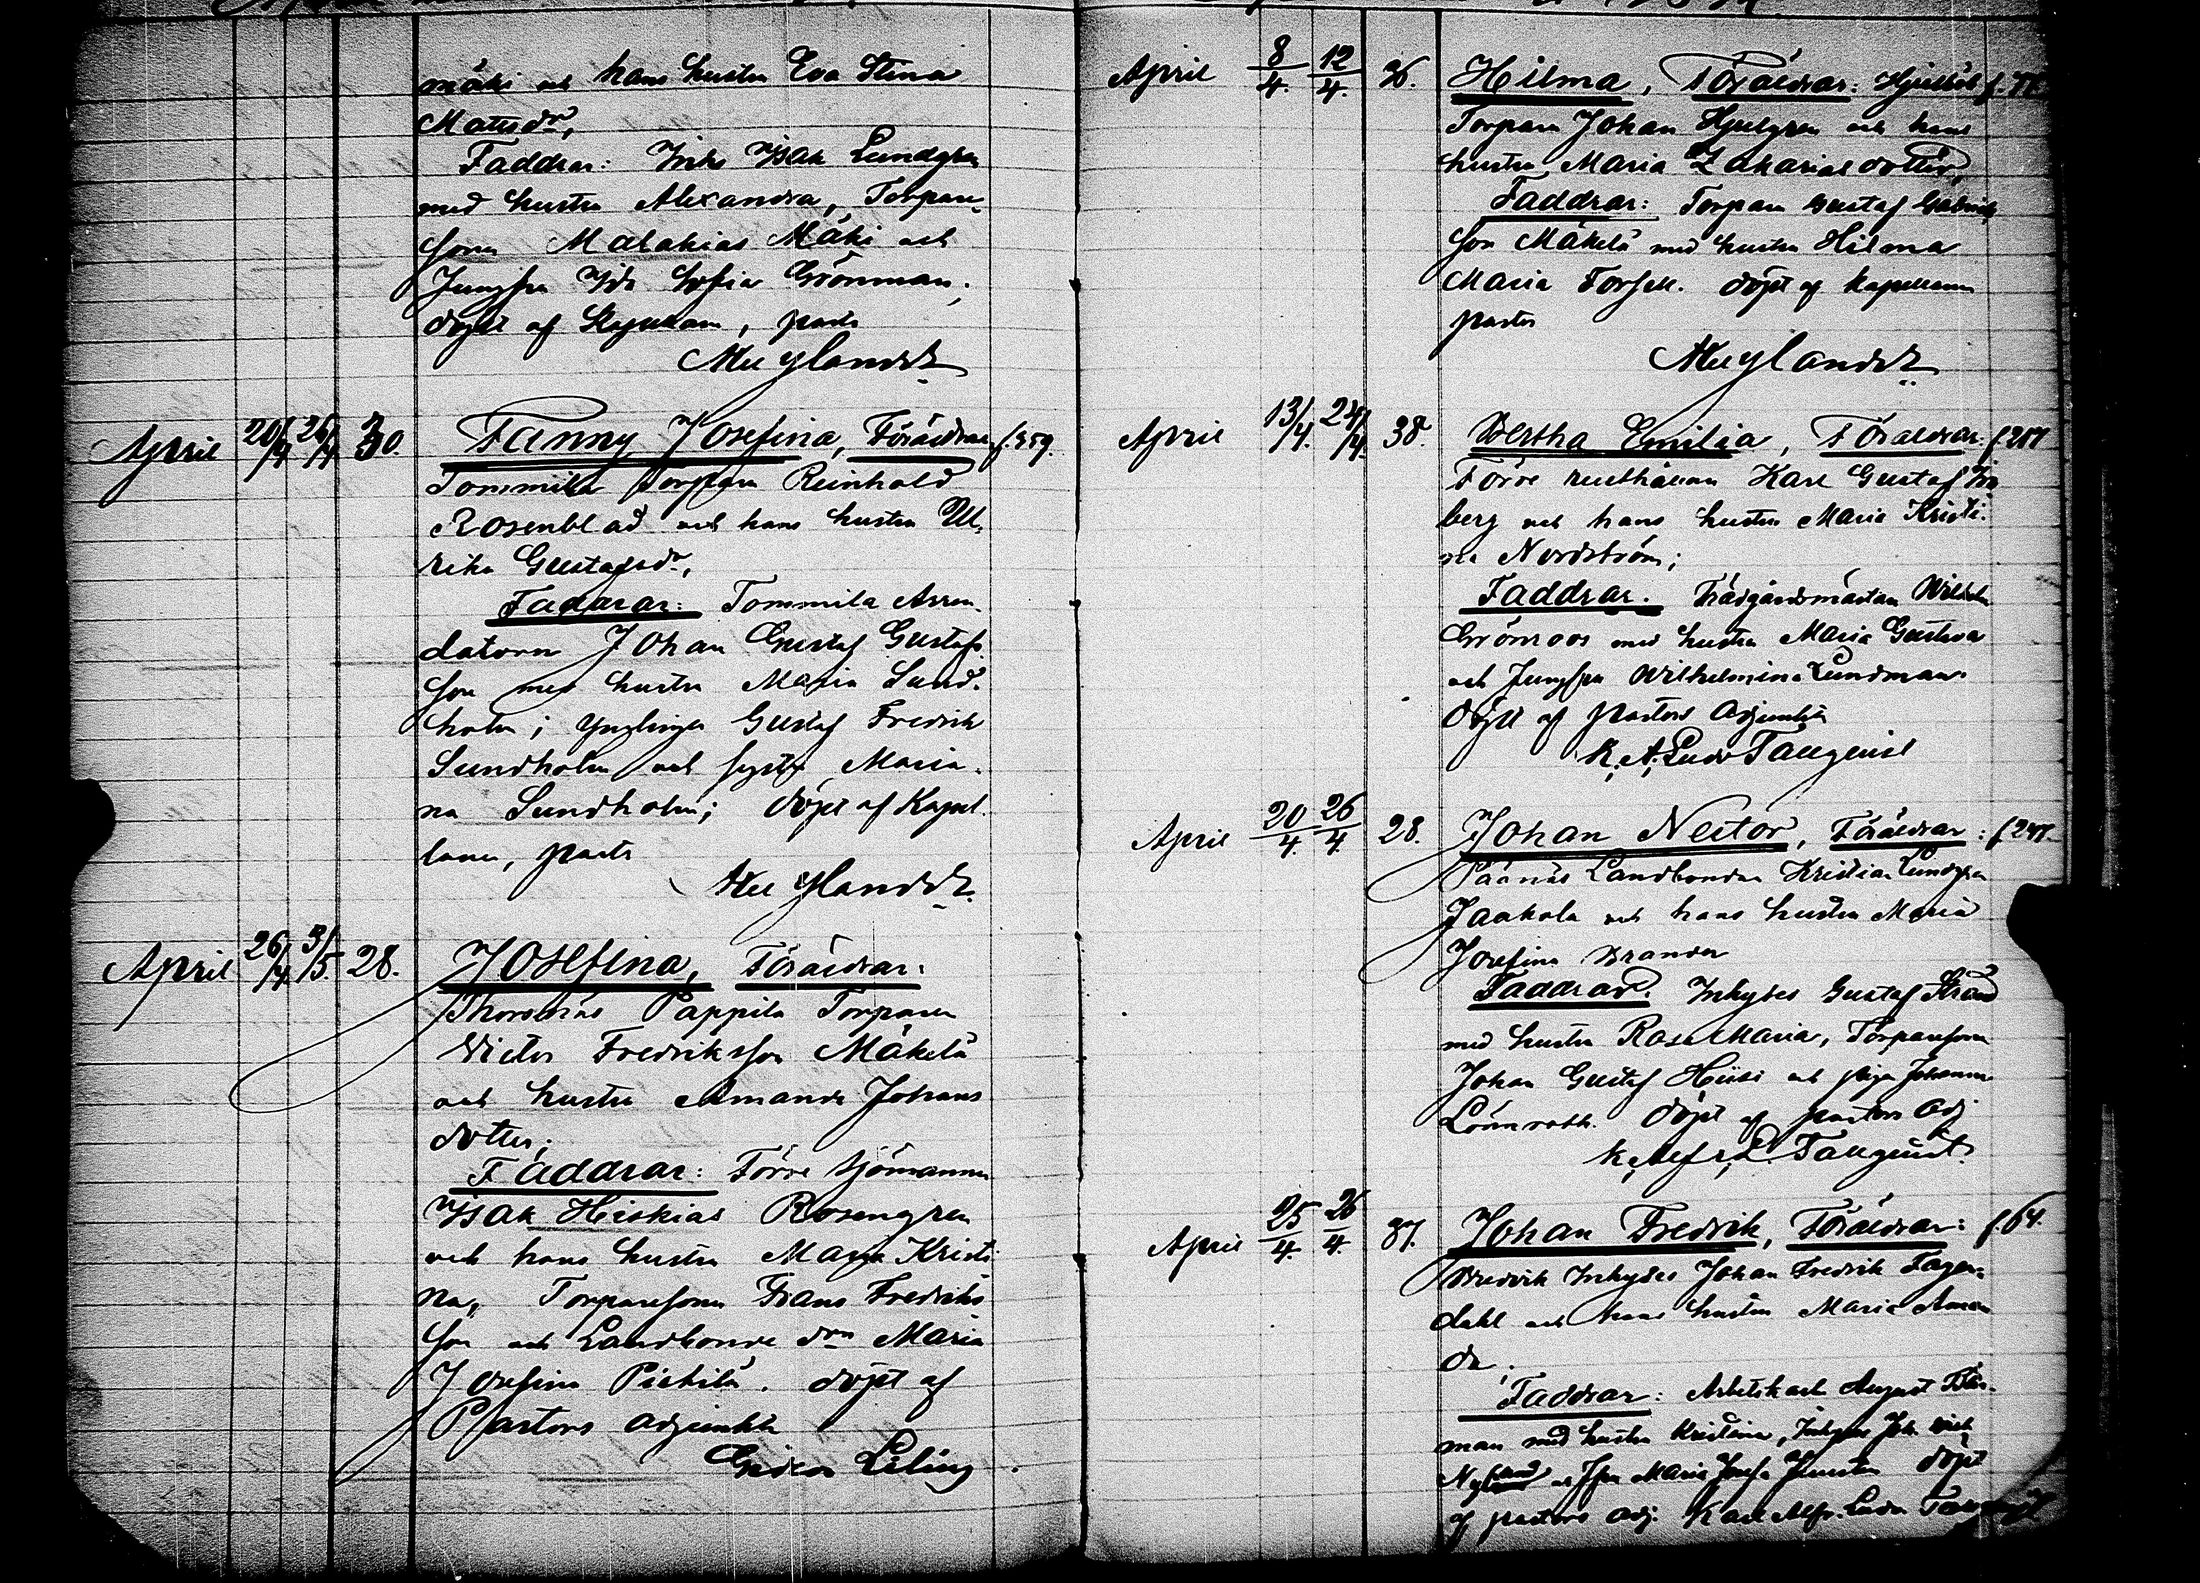 mäki och hans hustru Eva Stina
Matsdr,
Faddrar: Inhs Isak Lundgren
med hustru Alexandra, Torpare
sonen Malakias Mäki och
Jungfru Ida Sofia Grönman.
döpt af Kapellan, past
Nylandr
April 20/4 26/4 30. Fanny Josefina, Föräldrar f. 359.
Tommila Torparen Reinhold
Rosenblad och hans hustru Ul,
rika Gustafsdr,
Faddrar: Tommila Arren-
datorn Johan Gustaf Gustafs
son med hustru Maria Sund-
holm; ynglingen Gustaf Fredrik
Sundholm och syster Maria-
na Sundholm; döpt af Kapel-
lanen, pastor
Nylandr
April 26/4 3/5 28. Josefina, Föräldrar:
Pappila Torparen
Victor Fredriksson Mäkelä
och hustru Amanda Johans
dotter;
Faddrar: Förre sjömannen
Isak Heskias Rosengren
och hans hustru Maria Kristi
na, Torparesonen Frans Fredriks
son och Landbonde drn Maria
Josefina Pietilä. döpt af
Pastors adjunkten
Gideon
April 8/4 12/4 36. Hilma, Föräldrar: f. 77
Torparen Johan Hjulgren och hans
hustru Maria Zakarias dotter,
Faddrar: Torparen Gustaf Gabriels
son Mäkelä med hustru Hilma
Maria Forsell. döpt af kapellanen
pastor
Nylandr
April 13/4 24/4 38. Bertha Emilia, Föräldrar: f 217
Förre rusthållaren Karl Gustaf
berg och hans hustru Maria Kristi-
na Nordström;
Faddrar: Trädgårdsmästaren Wilhelm
Grönroos med hustru Maria Gustava
och Jungfru Wilhelmina Lundman
döpt af pastors adjunkten
K. A. Ludv Tallquist
April 20/4 26/4 28. Johan Nestor, Föräldrar: f 247.
Päänäs Landbonden Kristian Lundgren
Jaakola och hans hustru Maria
Josefina Brander
Faddrar: Inhyses Gustaf Strand
med hustru Rosa Maria, Torparesonen
Johan Gustaf Hiisi och pigan Johanna
Lönnroth. döpt af pastors adj
K. Alfr. L. Tallquist.
April 25/4 26/4 37. Johan Fredrik, Föräldrar: f. 64.
Bredvik Inhyses Johan Fredrik Fager-
dahl och hans hustru Maria Aman
da;
Faddrar: Arbetskarl August
man med hustru Kristina, Inhyses Joh.
Nylund och Jfru Maria Josefa döpt
af pastors adj. Karl Alfr. Ludv Tallquist